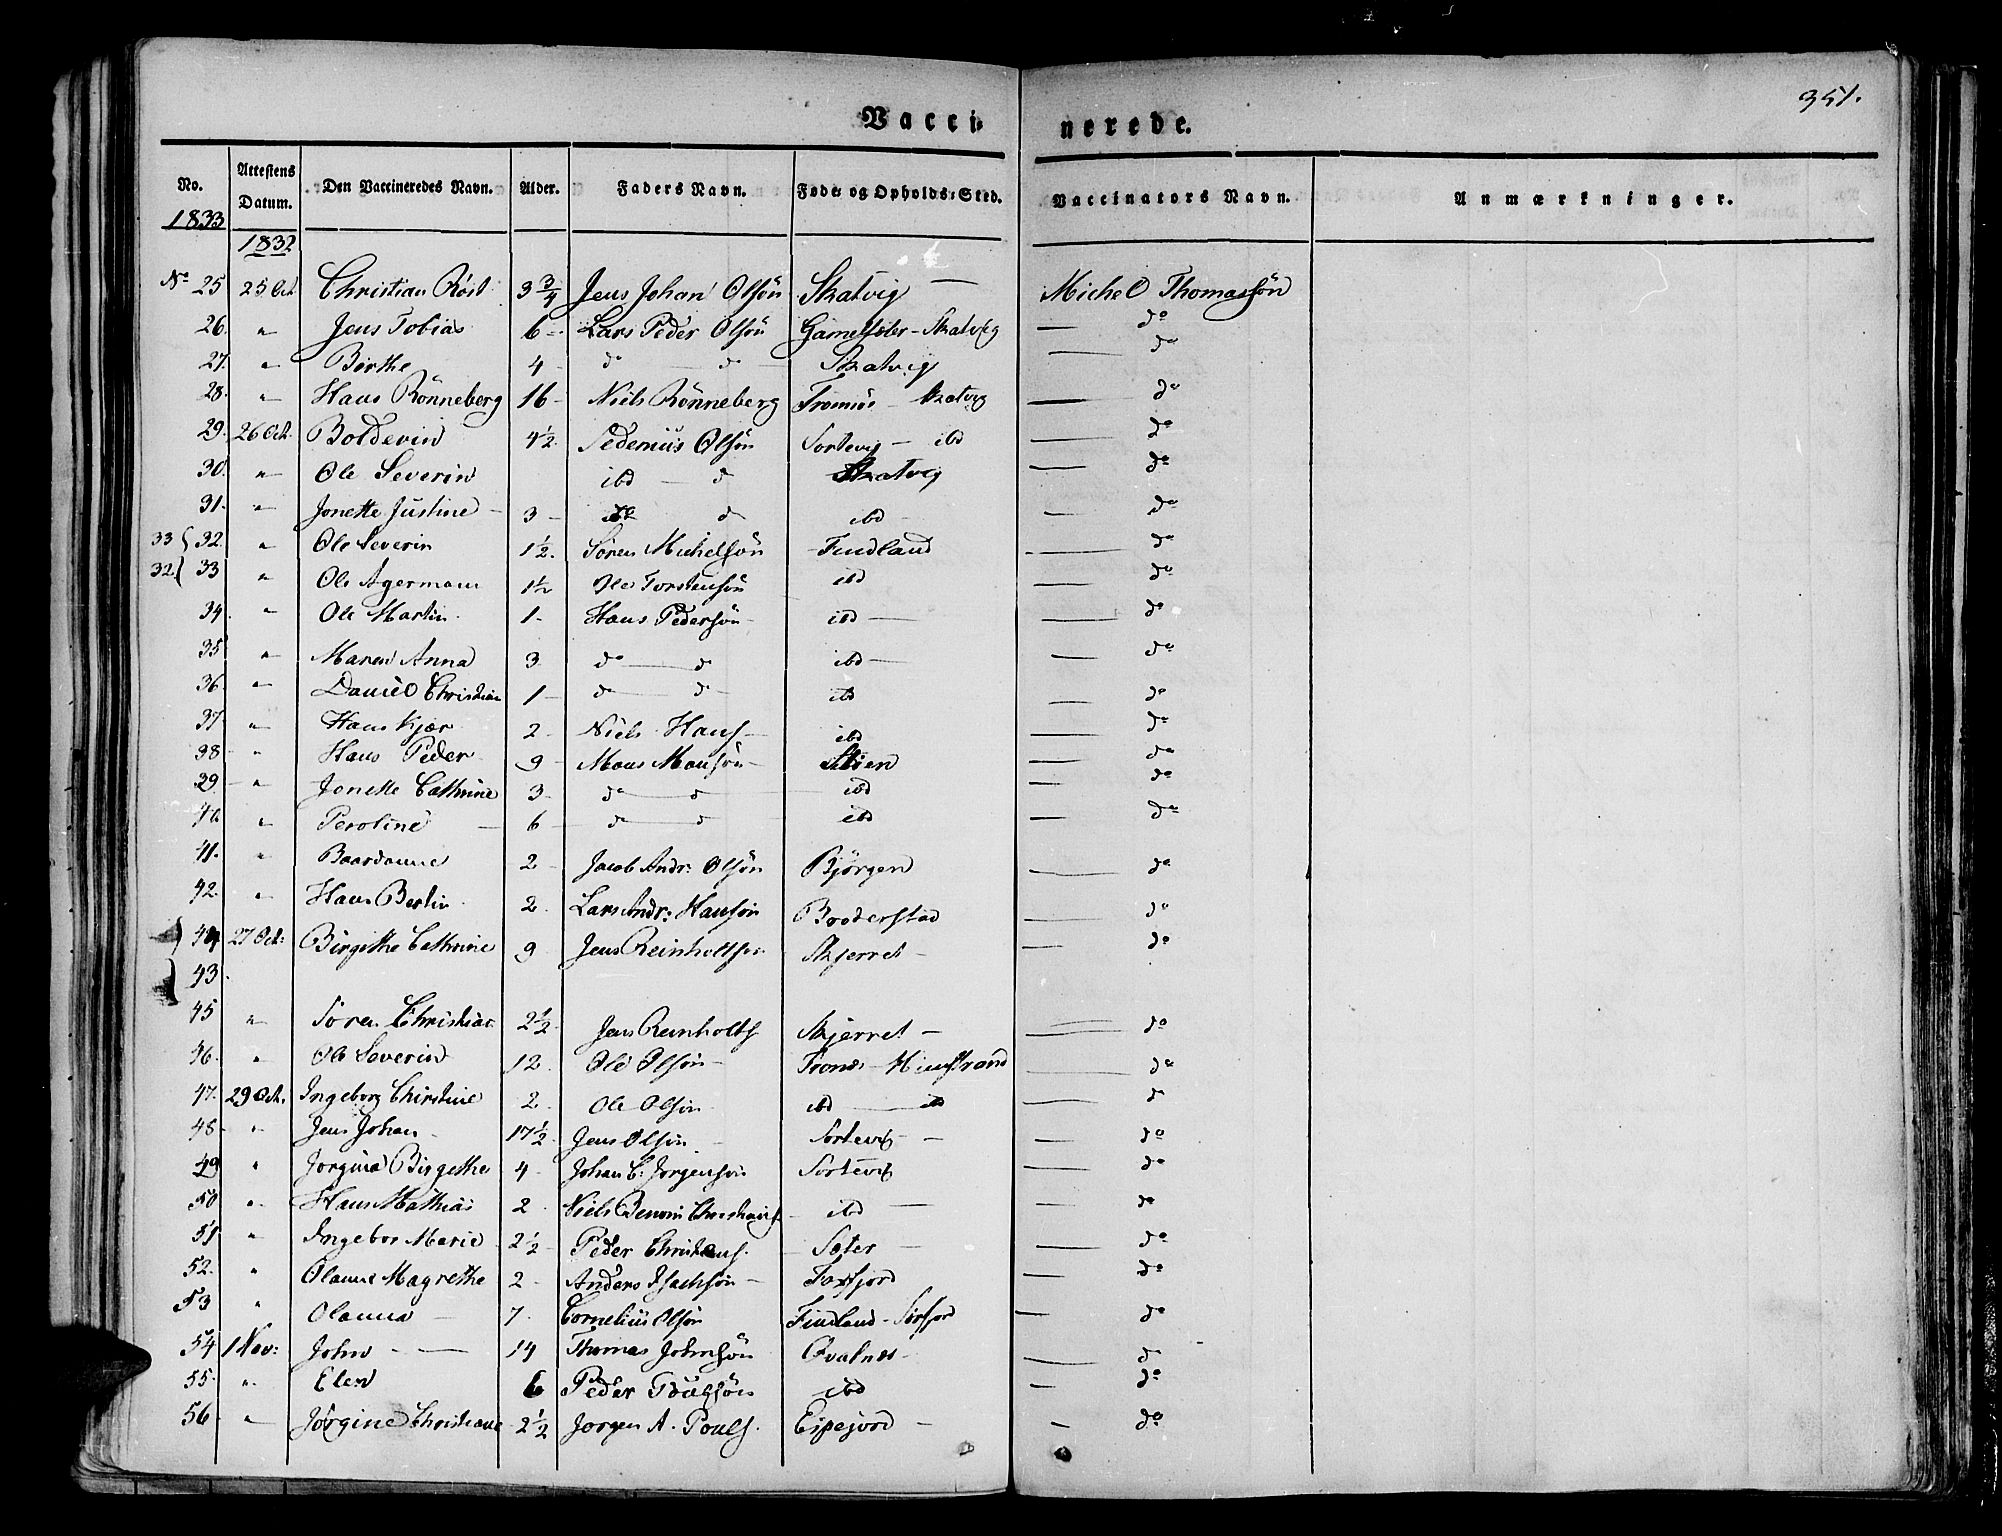 351.
Vaccinerede.
No. | Attestens Datum. | Den Vaccineredes Navn. | Alder. | Faders Navn. | Føde- og Opholds-Sted. | Vaccinators Navn. | Anmærkninger.
1833
1832
No 25 25 Oct Christian Röst 3 3/4 Jens Johan Olsön Skatvig — Michel Thomassön
26. " Jens Tobias 6 - Lars Peder Olsön Gammelsæter - Skatvig — do
27. " Birthe 4 - do — do Skatvig — do
28. " Hans Rönneberg 16 - Niels Rönneberg Tromsöe - Skatvig — do
29. 26 Oct. Boldevin 4 1/2. Pedemius Olsön Sortevig — ibd — do
30. " Ole Severin ibd — d Skatvig — do
31. " Jonette Justine - 3 - d ibd - — do
33 { 32. " Ole Severin 1 1/2. Sören Michelsön Findland — do
32 { 33 " Ole Agermann 1 1/2 Ole Torstensön ibd — do
34. " Ole Martin. 1. Hans Pedersön ibd — — do
35 " Maren Anna 3 do — d ibd — — do
36. " Daniel Christian 1 - do — do - ibd — do
37. " Hans Kjær 2 - Niels Hans — ibd — do
38 - " Hans Peder 9 - Mons Monsön - Skien — do
39 - " Jonette Cathrine 3 - do — d ibd — do
40 " Peroline — 6 - do — d ibd — do
41. " Baardanne 2 - Jacob Andr: Olsön Björgen — do
42. " Hans Bertin. 2. Lars Andr: Hansön Brøderstad — do
44 27 Oct: Birgithe Cathrine 9 Jens Reinholtsön Skjerret - — do
43.
45 " Sören Christian 2 1/2 Jens Reinholts Skjerret — — do
46. " Ole Severin 12. Ole Olsön — Tronæs - — do
47. 29 Oct. Ingeborg Christine 2 Ole Olsön ibd — ib — do
48 - " Jens Johan - 17 1/2 Jens Olsön - Sortevig - — do
49 " Jorgina Birgethe 4 - Johan C: Jorgensön Sortevig — do
50 " Hans Mathias 2 Niels Benoni Christians - ibd — — do
51 " Ingebor Marie 2 1/2 - Peder Christens. - Sæter — — do
52. " Olanne Magrethe 2 - Anders Isachsön - Taxfjord — do
53 " Olanna — 7. Cornelius Olsön Findland - Sörfjord — do
54 1 Nov: John - — 14 Thomas Johnsön Qvalnes - — do
55. " Elen 6 Peder Poulsön ibd — do
56 - " Jørgine Christiane 2 1/2 Jorgen A. Pouls. Espejord — — do